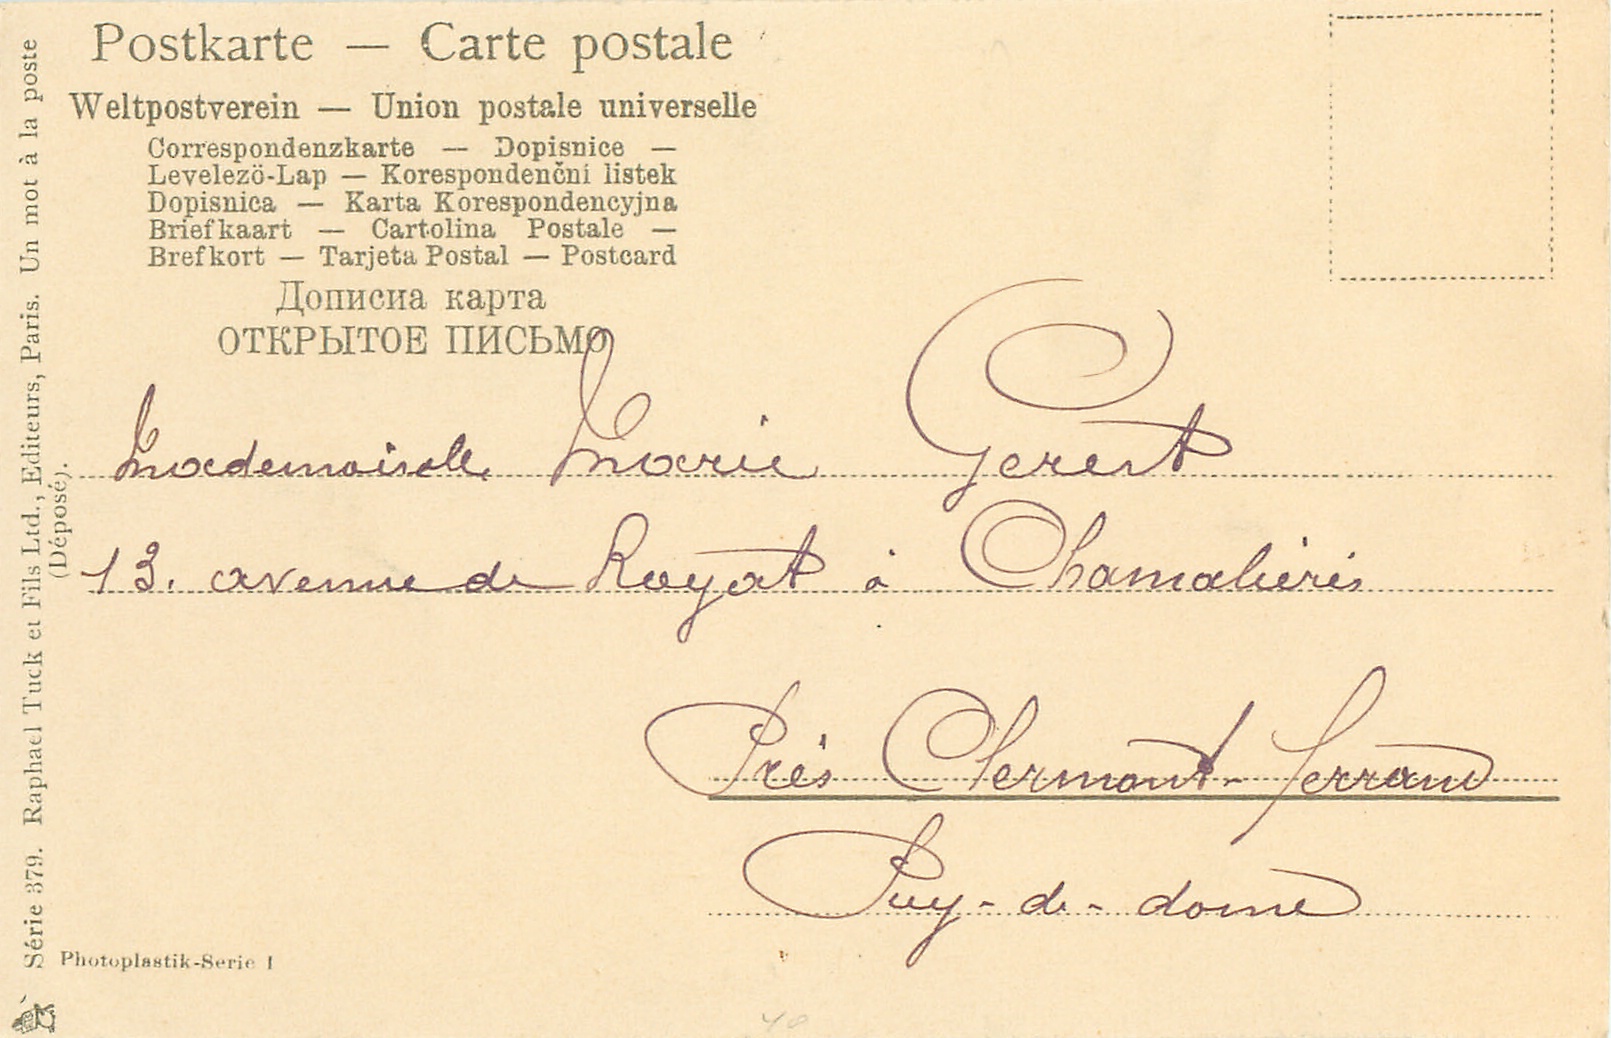 Postkarte — Carte postale
Weltpostverein — Union postale universelle
Correspondenzkarte — Dopisnice —
Levelezö-Lap — Korespondenční listek
Dopisnica — Karta Korespondencyjna
Briefkaart — Cartolina Postale —
Brefkort — Tarjeta Postal — Postcard
Дописна карта
ОТКРЫТОЕ ПИСЬМО
Mademoiselle Marie Gerest
13. avenue de Royat à Chamalières
Près Clermont-Ferrand
Puy-de-dome
Série 379. Raphael Tuck et Fils Ltd., Editeurs, Paris. Un mot à la poste
(Déposé).
Photoplastik-Serie I
40